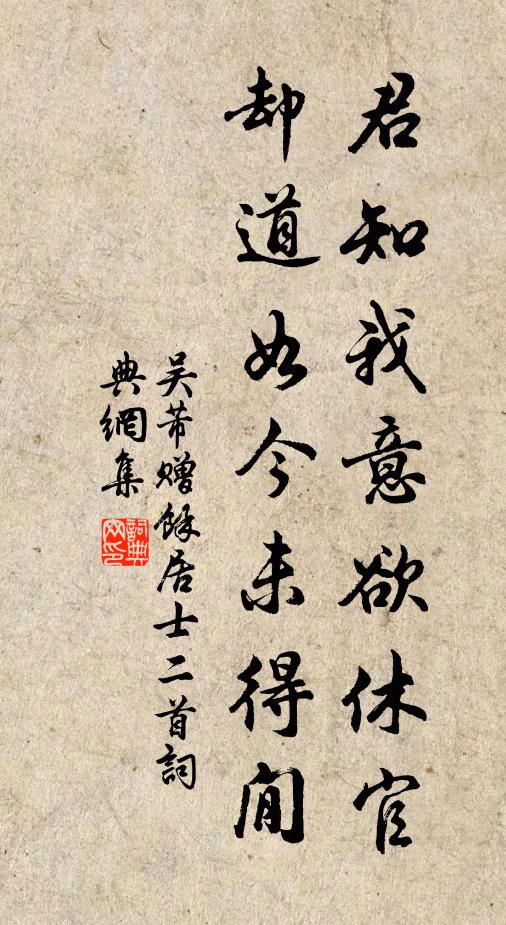 君知我意欲休官
却道如今未得閒
吴芾赠餘居士二首詞
典網集
詞典
网印